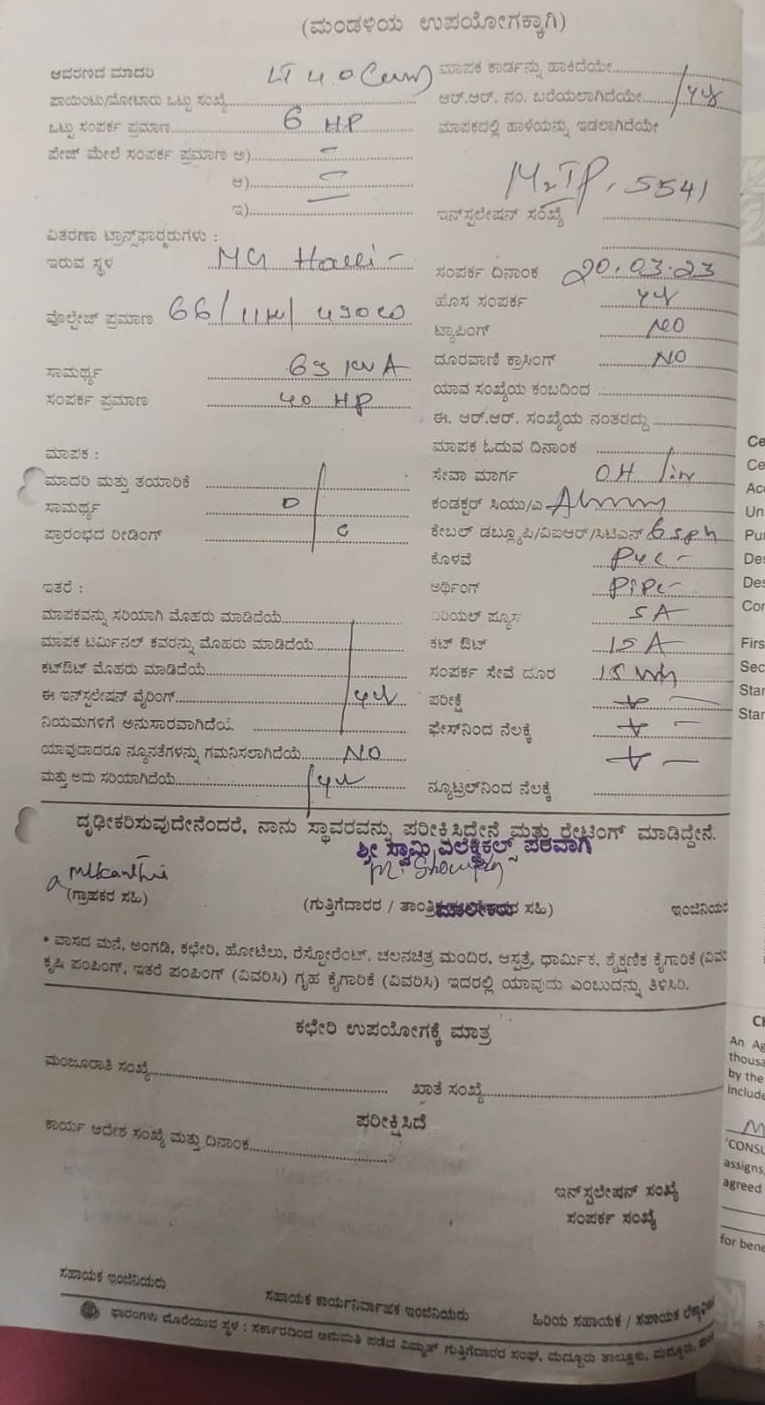 (ಮಂಡಳಿಯ ಉಪಯೋಗಕ್ಕಾಗಿ)
ಆವರಣದ ಮಾದರಿ LT 4.0
ಪಾಯಿಂಟು/ಮೋಟಾರು ಒಟ್ಟು ಸಂಖ್ಯೆ
ಒಟ್ಟು ಸಂಪರ್ಕ ಪ್ರಮಾಣ 6 HP
ಪೇಜ್ ಮೇಲೆ ಸಂಪರ್ಕ ಪ್ರಮಾಣ ಅ) -
ಆ) -
ಇ) -
ವಿತರಣಾ ಟ್ರಾನ್ಸ್‌ಫಾರ್‍ಮರುಗಳು :
ಇರುವ ಸ್ಥಳ MG Halli -
ವೊಲ್ಟೇಜ್ ಪ್ರಮಾಣ 66/11
ಸಾಮರ್ಥ್ಯ 63 KVA
ಸಂಪರ್ಕ ಪ್ರಮಾಣ 40 HP
ಮಾಪಕ :
ಮಾದರಿ ಮತ್ತು ತಯಾರಿಕೆ
ಸಾಮರ್ಥ್ಯ
ಪ್ರಾರಂಭದ ರೀಡಿಂಗ್
ಇತರೆ :
ಮಾಪಕವನ್ನು ಸರಿಯಾಗಿ ಮೊಹರು ಮಾಡಿದೆಯೆ
ಮಾಪಕ ಟರ್ಮಿನಲ್ ಕವರನ್ನು ಮೊಹರು ಮಾಡಿದೆಯೆ
ಕಟ್‌ಔಟ್ ಮೊಹರು ಮಾಡಿದೆಯೆ
ಈ ಇನ್‌ಸ್ಟಲೇಷನ್ ವೈರಿಂಗ್ yes
ನಿಯಮಗಳಿಗೆ ಅನುಸಾರವಾಗಿದೆಯೆ
ಯಾವುದಾದರೂ ನ್ಯೂನತೆಗಳನ್ನು ಗಮನಿಸಲಾಗಿದೆಯೆ NO
ಮತ್ತು ಅದು ಸರಿಯಾಗಿದೆಯೆ yes
ಮಾಪಕ ಕಾರ್ಡನ್ನು ಹಾಕಿದೆಯೇ
ಆರ್.ಆರ್. ನಂ. ಬರೆಯಲಾಗಿದೆಯೇ yes
ಮಾಪಕದಲ್ಲಿ ಹಾಳೆಯನ್ನು ಇಡಲಾಗಿದೆಯೇ
5541
ಇನ್‌ಸ್ಟಲೇಷನ್ ಸಂಖ್ಯೆ
ಸಂಪರ್ಕ ದಿನಾಂಕ 20.03.23
ಹೊಸ ಸಂಪರ್ಕ yes
ಟ್ಯಾಪಿಂಗ್ NO
ದೂರವಾಣಿ ಕ್ರಾಸಿಂಗ್ NO
ಯಾವ ಸಂಖ್ಯೆಯ ಕಂಬದಿಂದ
ಈ. ಆರ್.ಆರ್. ಸಂಖ್ಯೆಯ ನಂತರದ್ದು
ಮಾಪಕ ಓದುವ ದಿನಾಂಕ
ಸೇವಾ ಮಾರ್ಗ OH line
ಕಂಡಕ್ಟರ್ ಸಿಯು/ಎ
ಕೇಬಲ್ ಡಬ್ಲ್ಯೂಪಿ/ವಿಐಆರ್/ಸಿಟಿಎಸ್
ಕೊಳವೆ PVC -
ಅರ್ಥಿಂಗ್ PiPe -
ಏರಿಯಲ್ ಪ್ಯೂಸ್ 5A
ಕಟ್ ಔಟ್ 15 A
ಸಂಪರ್ಕ ಸೇವೆ ದೂರ 15
ಪರೀಕ್ಷೆ + -
ಫೇಸ್‌ನಿಂದ ನೆಲಕ್ಕೆ + -
+ -
ನ್ಯೂಟ್ರಲ್‌ನಿಂದ ನೆಲಕ್ಕೆ
ದೃಢೀಕರಿಸುವುದೇನೆಂದರೆ, ನಾನು ಸ್ಥಾವರವನ್ನು ಪರೀಕ್ಷಿಸಿದ್ದೇನೆ ಮತ್ತು ರೇಟಿಂಗ್ ಮಾಡಿದ್ದೇನೆ.
ಶ್ರೀ ಸ್ವಾಮಿ ಎಲೆಕ್ಟ್ರಿಕಲ್ಸ್ ಪರವಾಗಿ
(ಗ್ರಾಹಕರ ಸಹಿ)
(ಗುತ್ತಿಗೆದಾರರ / ಸಹಿ)
ಮಾಲೀಕರು
ಇಂಜಿನಿಯರ
* ವಾಸದ ಮನೆ, ಅಂಗಡಿ, ಕಛೇರಿ, ಹೋಟೆಲು, ರೆಸ್ಟೋರೆಂಟ್, ಚಲನಚಿತ್ರ ಮಂದಿರ, ಆಸ್ಪತ್ರೆ, ಧಾರ್ಮಿಕ, ಶೈಕ್ಷಣಿಕ ಕೈಗಾರಿಕೆ (ವಿವರಿ
ಕೃಷಿ ಪಂಪಿಂಗ್, ಇತರೆ ಪಂಪಿಂಗ್ (ವಿವರಿಸಿ) ಗೃಹ ಕೈಗಾರಿಕೆ (ವಿವರಿಸಿ) ಇದರಲ್ಲಿ ಯಾವುದು ಎಂಬುದನ್ನು ತಿಳಿಸಿರಿ.
ಕಛೇರಿ ಉಪಯೋಗಕ್ಕೆ ಮಾತ್ರ
ಮಂಜೂರಾತಿ ಸಂಖ್ಯೆ
ಖಾತೆ ಸಂಖ್ಯೆ
ಪರೀಕ್ಷಿಸಿದೆ
ಕಾರ್ಯ ಆದೇಶ ಸಂಖ್ಯೆ ಮತ್ತು ದಿನಾಂಕ
ಇನ್‌ಸ್ಟಲೇಷನ್ ಸಂಖ್ಯೆ
ಸಂಪರ್ಕ ಸಂಖ್ಯೆ
ಸಹಾಯಕ ಇಂಜಿನಿಯರು
ಸಹಾಯಕ ಕಾರ್ಯನಿರ್ವಾಹಕ ಇಂಜಿನಿಯರು
ಹಿರಿಯ ಸಹಾಯಕ / ಸಹಾಯಕ
ಫಾರಂಗಳು ದೊರೆಯುವ ಸ್ಥಳ : ಸರ್ಕಾರದಿಂದ ಅನುಮತಿ ಪಡೆದ ವಿದ್ಯುತ್ ಗುತ್ತಿಗೆದಾರರ ಸಂಘ, ಮದ್ದೂರು ತಾಲ್ಲೂಕು, ಮದ್ದೂರು,
Ce
Ce
Acc
Un
Pur
Des
Des
Cor
Firs
Sec
Star
Star
An Ag
thousa
by the
include
'CONSU
assigns,
agreed
for bene